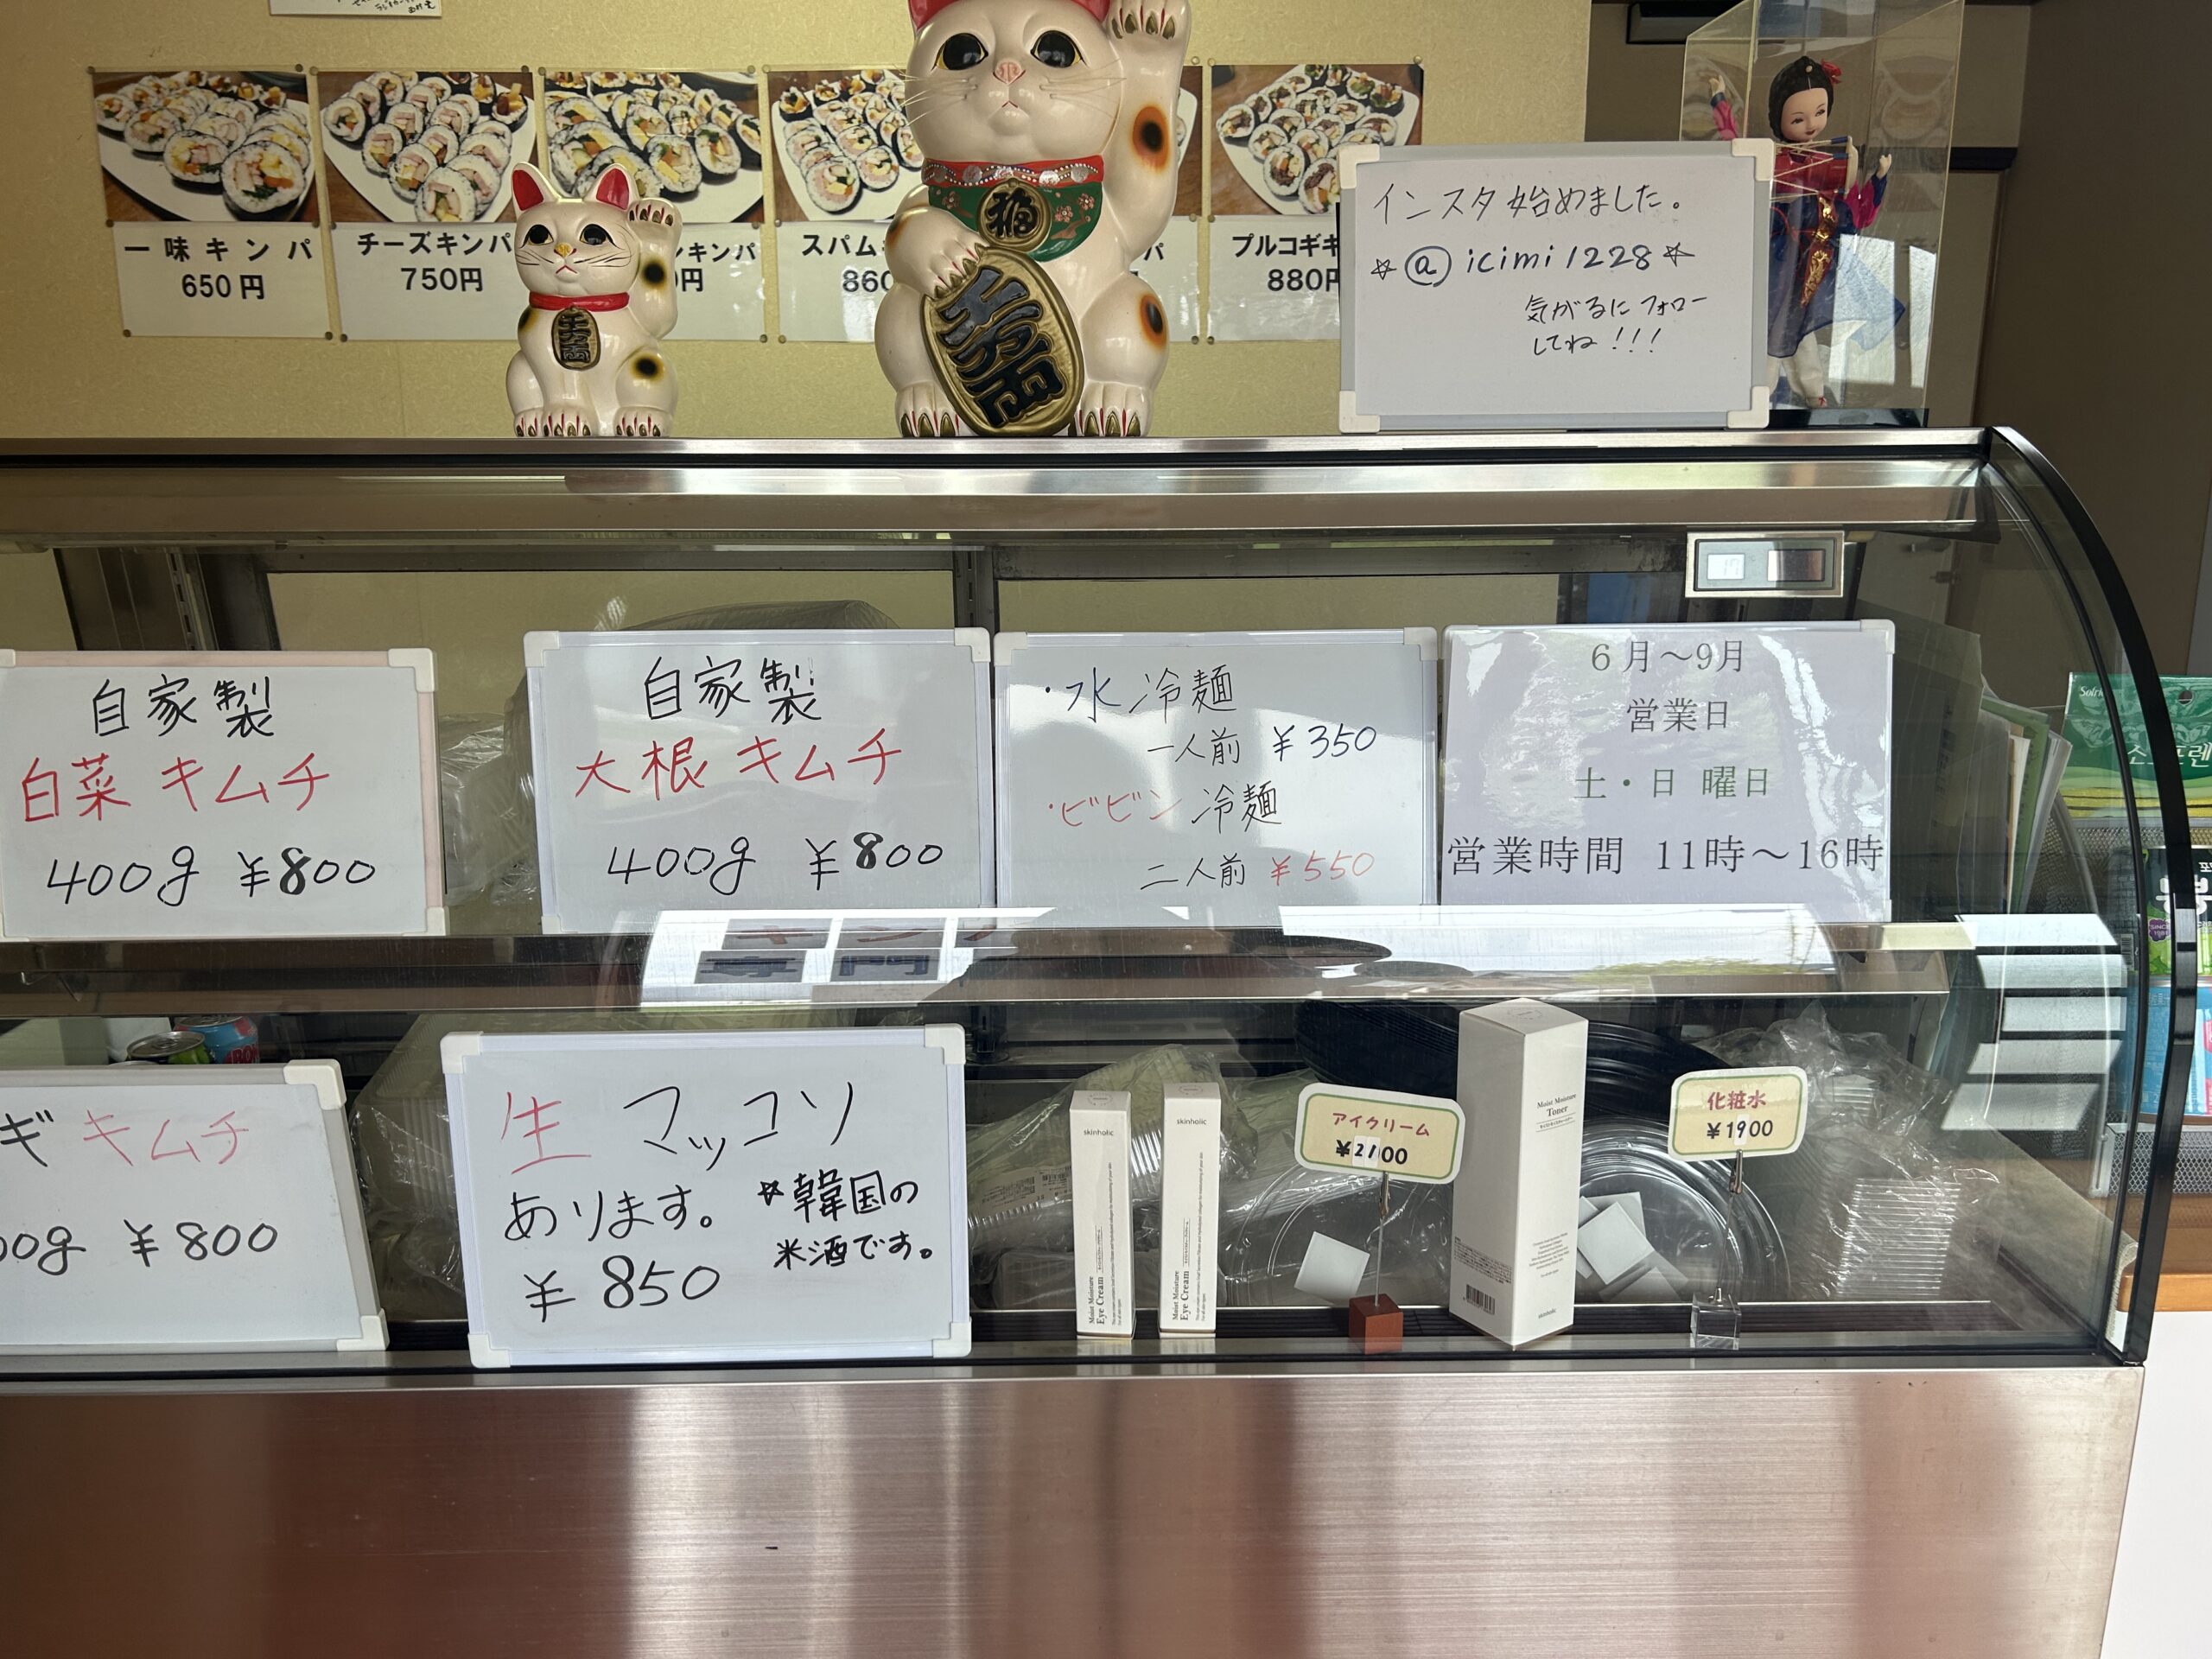 一味キンパ
650円
チーズキンパ
750円
ンキンパ
円
スパム
860
パ
プルコギキ
880円
福
千万両
千万両
インスタ始めました。
☆@icimi1228☆
気がるにフォロー
してね!!!
自家製
白菜キムチ
400g ¥800
自家製
大根キムチ
400g ¥800
・水冷麺
一人前 ¥350
・ビビン冷麺
二人前 ¥550
6月~9月
営業日
土・日 曜日
営業時間 11時~16時
ギ キムチ
00g ¥800
生 マッコソ
あります。
¥850
☆韓国の
米酒です。
skinholic
Moist Moisture
Eye Cream
skinholic
Moist Moisture
Eye Cream
アイクリーム
¥2100
Moist Moisture
Toner
skinholic
化粧水
¥1900
소프렌
専門